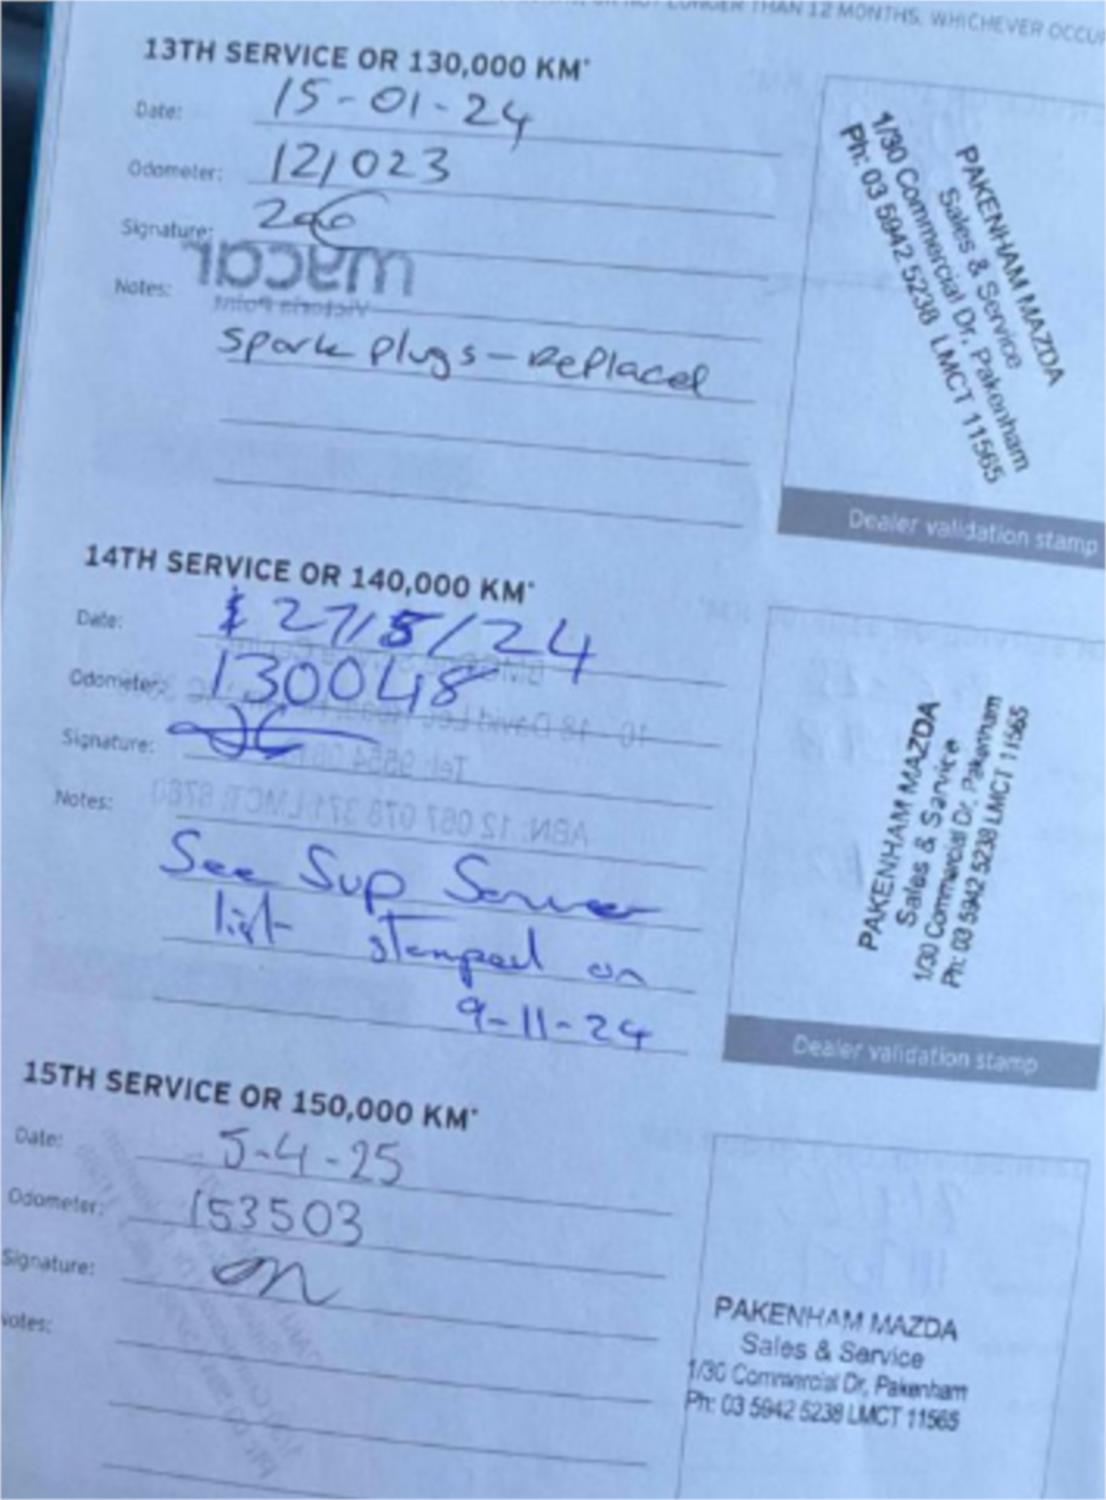 LONGER THAN 12 MONTHS, WHICHEVER OCCUR
13TH SERVICE OR 130,000 KM*
Date: 15-01-24
Odometer: 121023
Signature:
macar
Victoria Point
Notes:
Spark plugs - Replaced
PAKENHAM MAZDA
Sales & Service
1/30 Commercial Dr, Pakenham
Ph: 03 5942 5238 LMCT 11565
Dealer validation stamp
14TH SERVICE OR 140,000 KM*
Date: 27/5/24
Odometer: 130048
Signature:
Notes:
ABN: 12 087 078 371 LMCT: 8780
See Sup Service
list stamped on
9-11-24
PAKENHAM MAZDA
Sales & Service
1/30 Commercial Dr, Pakenham
Ph: 03 5942 5238 LMCT 11565
Dealer validation stamp
15TH SERVICE OR 150,000 KM*
Date: 5-4-25
Odometer: 153503
Signature:
Notes:
PAKENHAM MAZDA
Sales & Service
1/30 Commercial Dr, Pakenham
Ph: 03 5942 5238 LMCT 11565